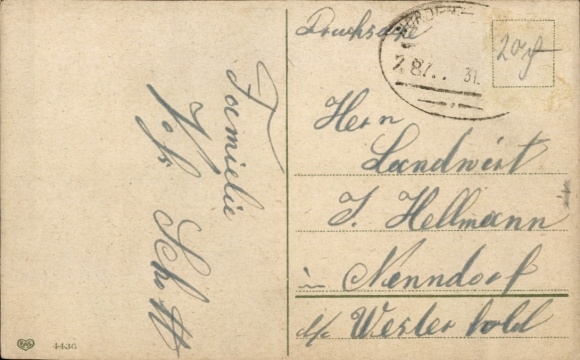 Drucksache
NORDEN
Z. 87.. 31.
20 ₰
Familie
Joh Schatt
Herrn
Landwirt
J. Hellmann
in Nenndorf
b/ Westerhold
4436